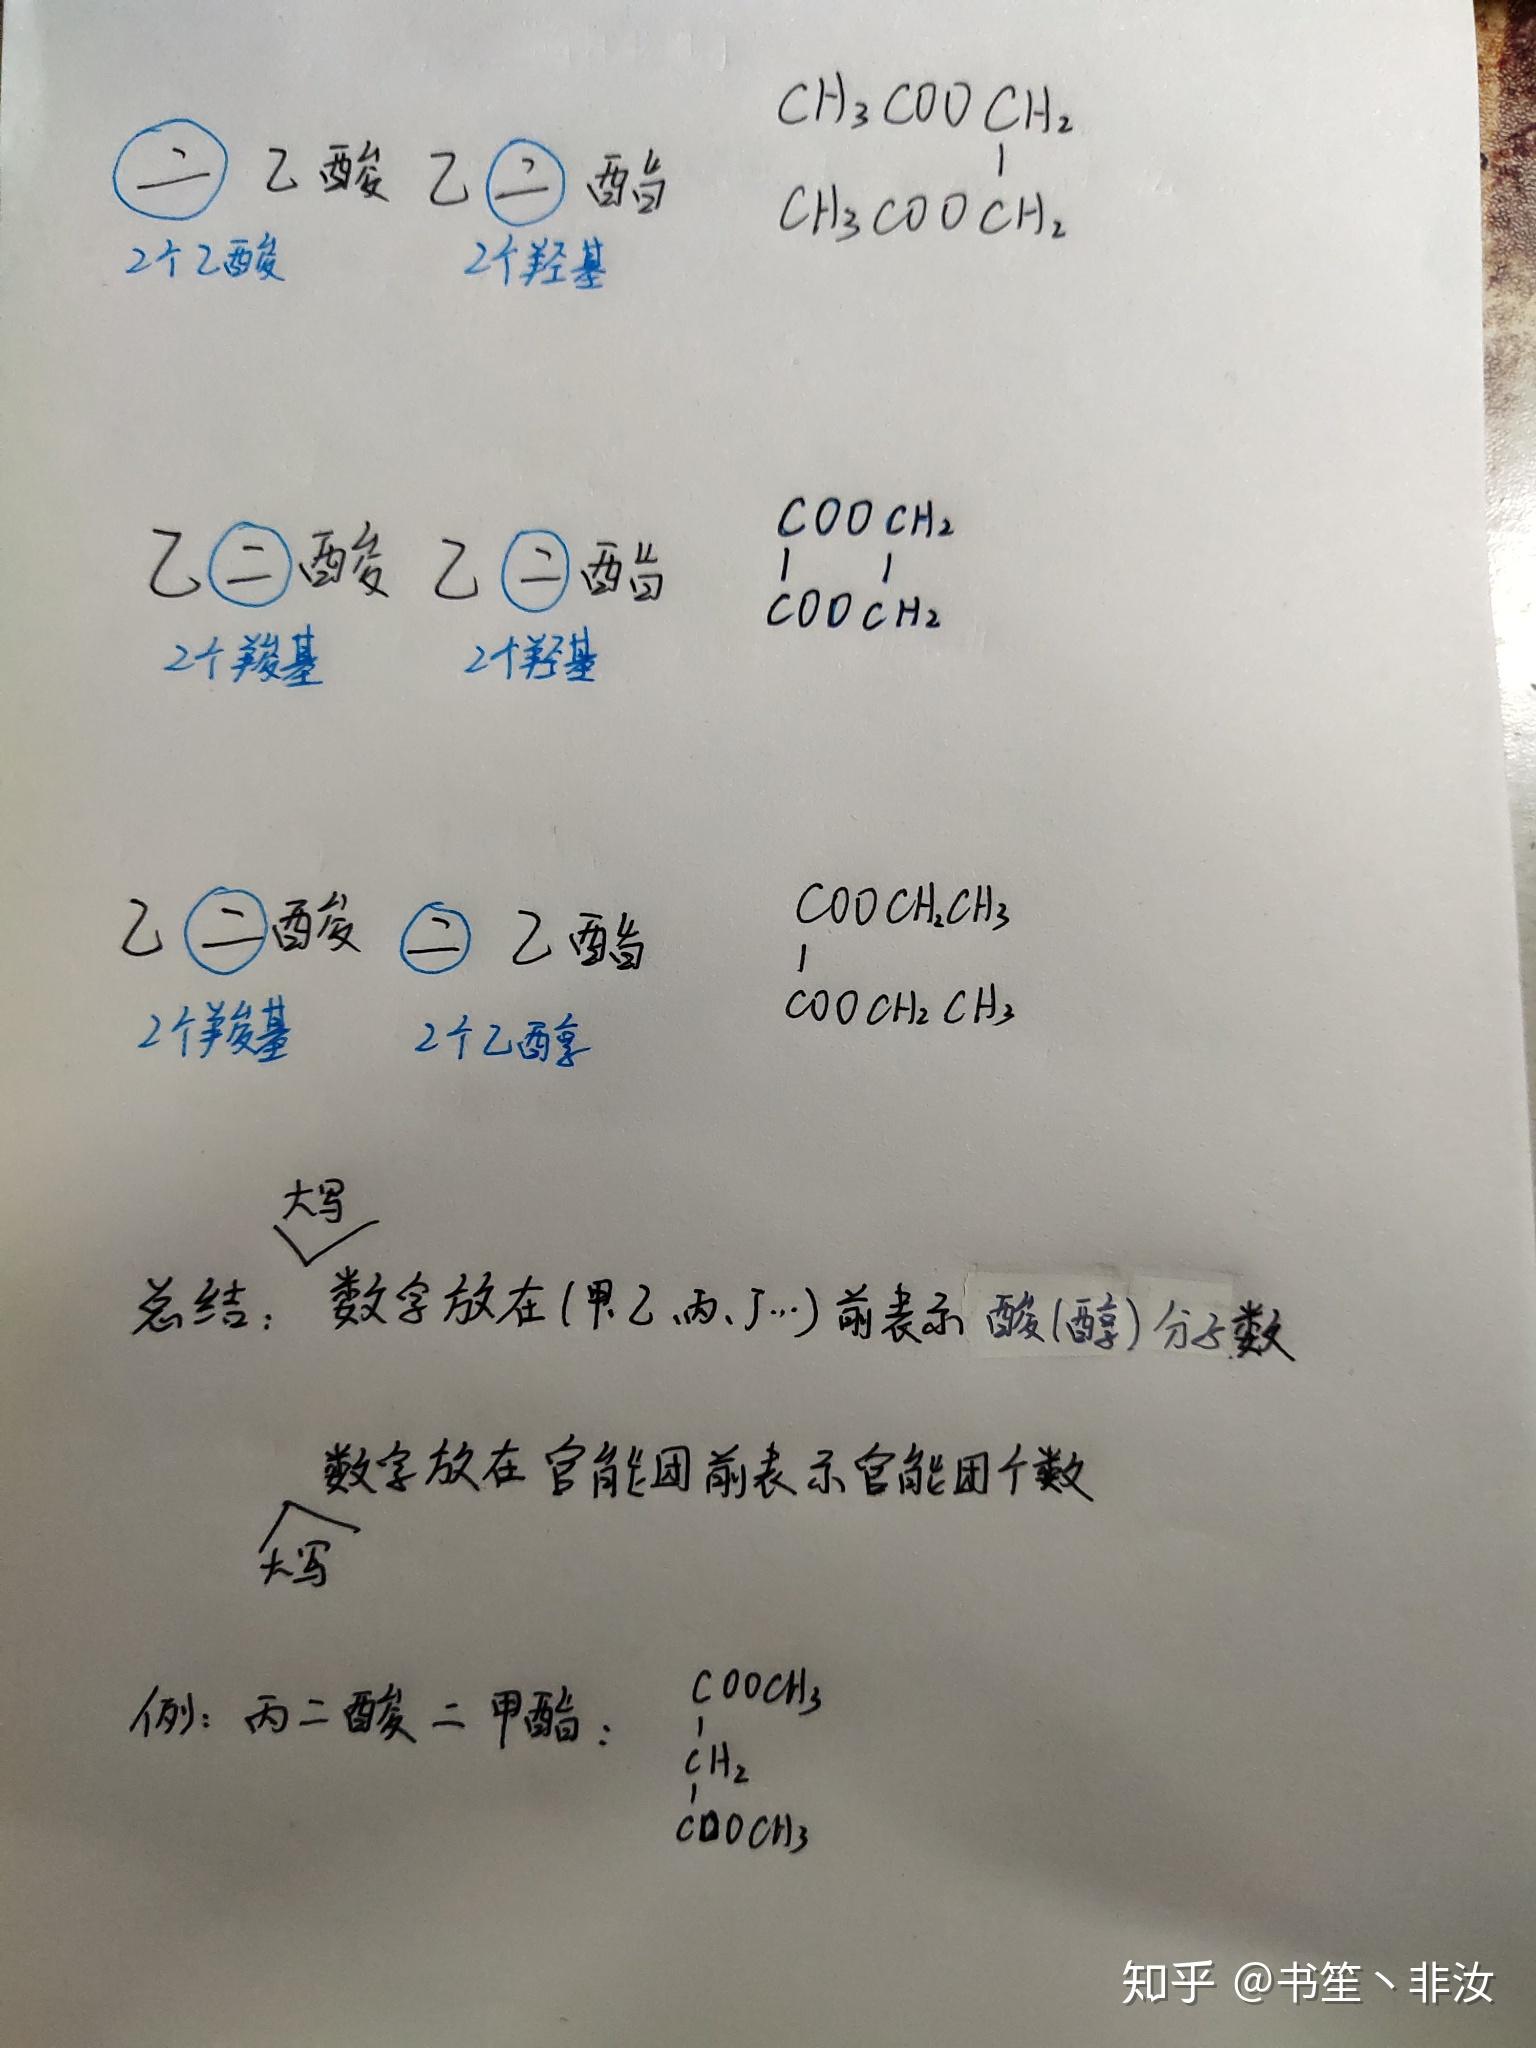 二乙酸乙二酯
2个乙酸 2个羟基
CH₃COOCH₂
|
CH₃COOCH₂
乙二酸乙二酯
2个羧基 2个羟基
COOCH₂
| |
COOCH₂
乙二酸二乙酯
2个羧基 2个乙醇
COOCH₂CH₃
|
COOCH₂CH₃
大写
总结：数字放在(甲、乙、丙、丁…)前表示酸(醇)分子数
数字放在官能团前表示官能团个数
大写
例：丙二酸二甲酯：
COOCH₃
|
CH₂
|
COOCH₃
知乎 @书笙丶非汝